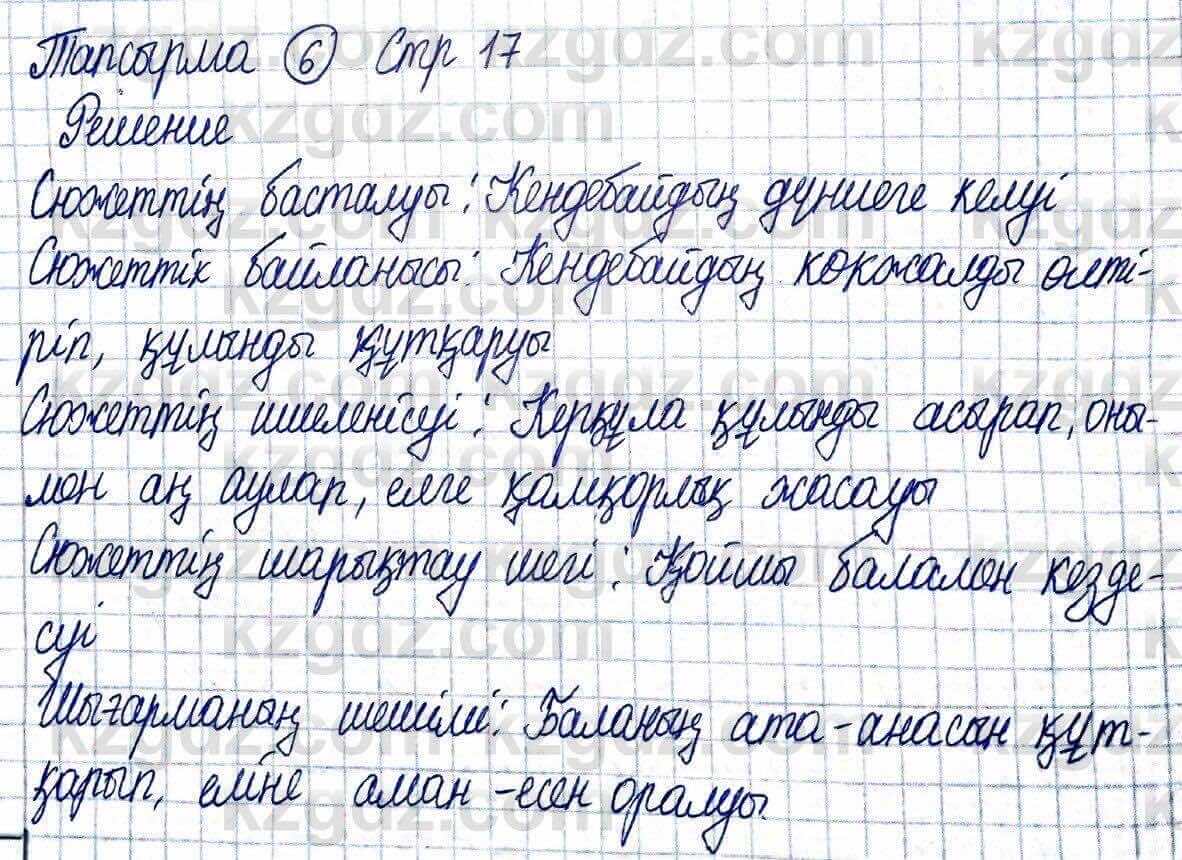 Тапсырма 6 Стр 17
Решение
Сюжеттің басталуы: Кендебайдың дүниеге келуі
Сюжеттік байланысы: Кендебайдың көкжалды өлті-
ріп, құлынды құтқаруы
Сюжеттің шиеленісуі: Керқұла құлынды асырап, оны-
мен аң аулап, елге қамқорлық жасауы
Сюжеттің шарықтау шегі: Қойшы баламен кезде-
суі
Шығарманың шешімі: Баланың ата-анасын құт-
қарып, еліне аман-есен оралуы.